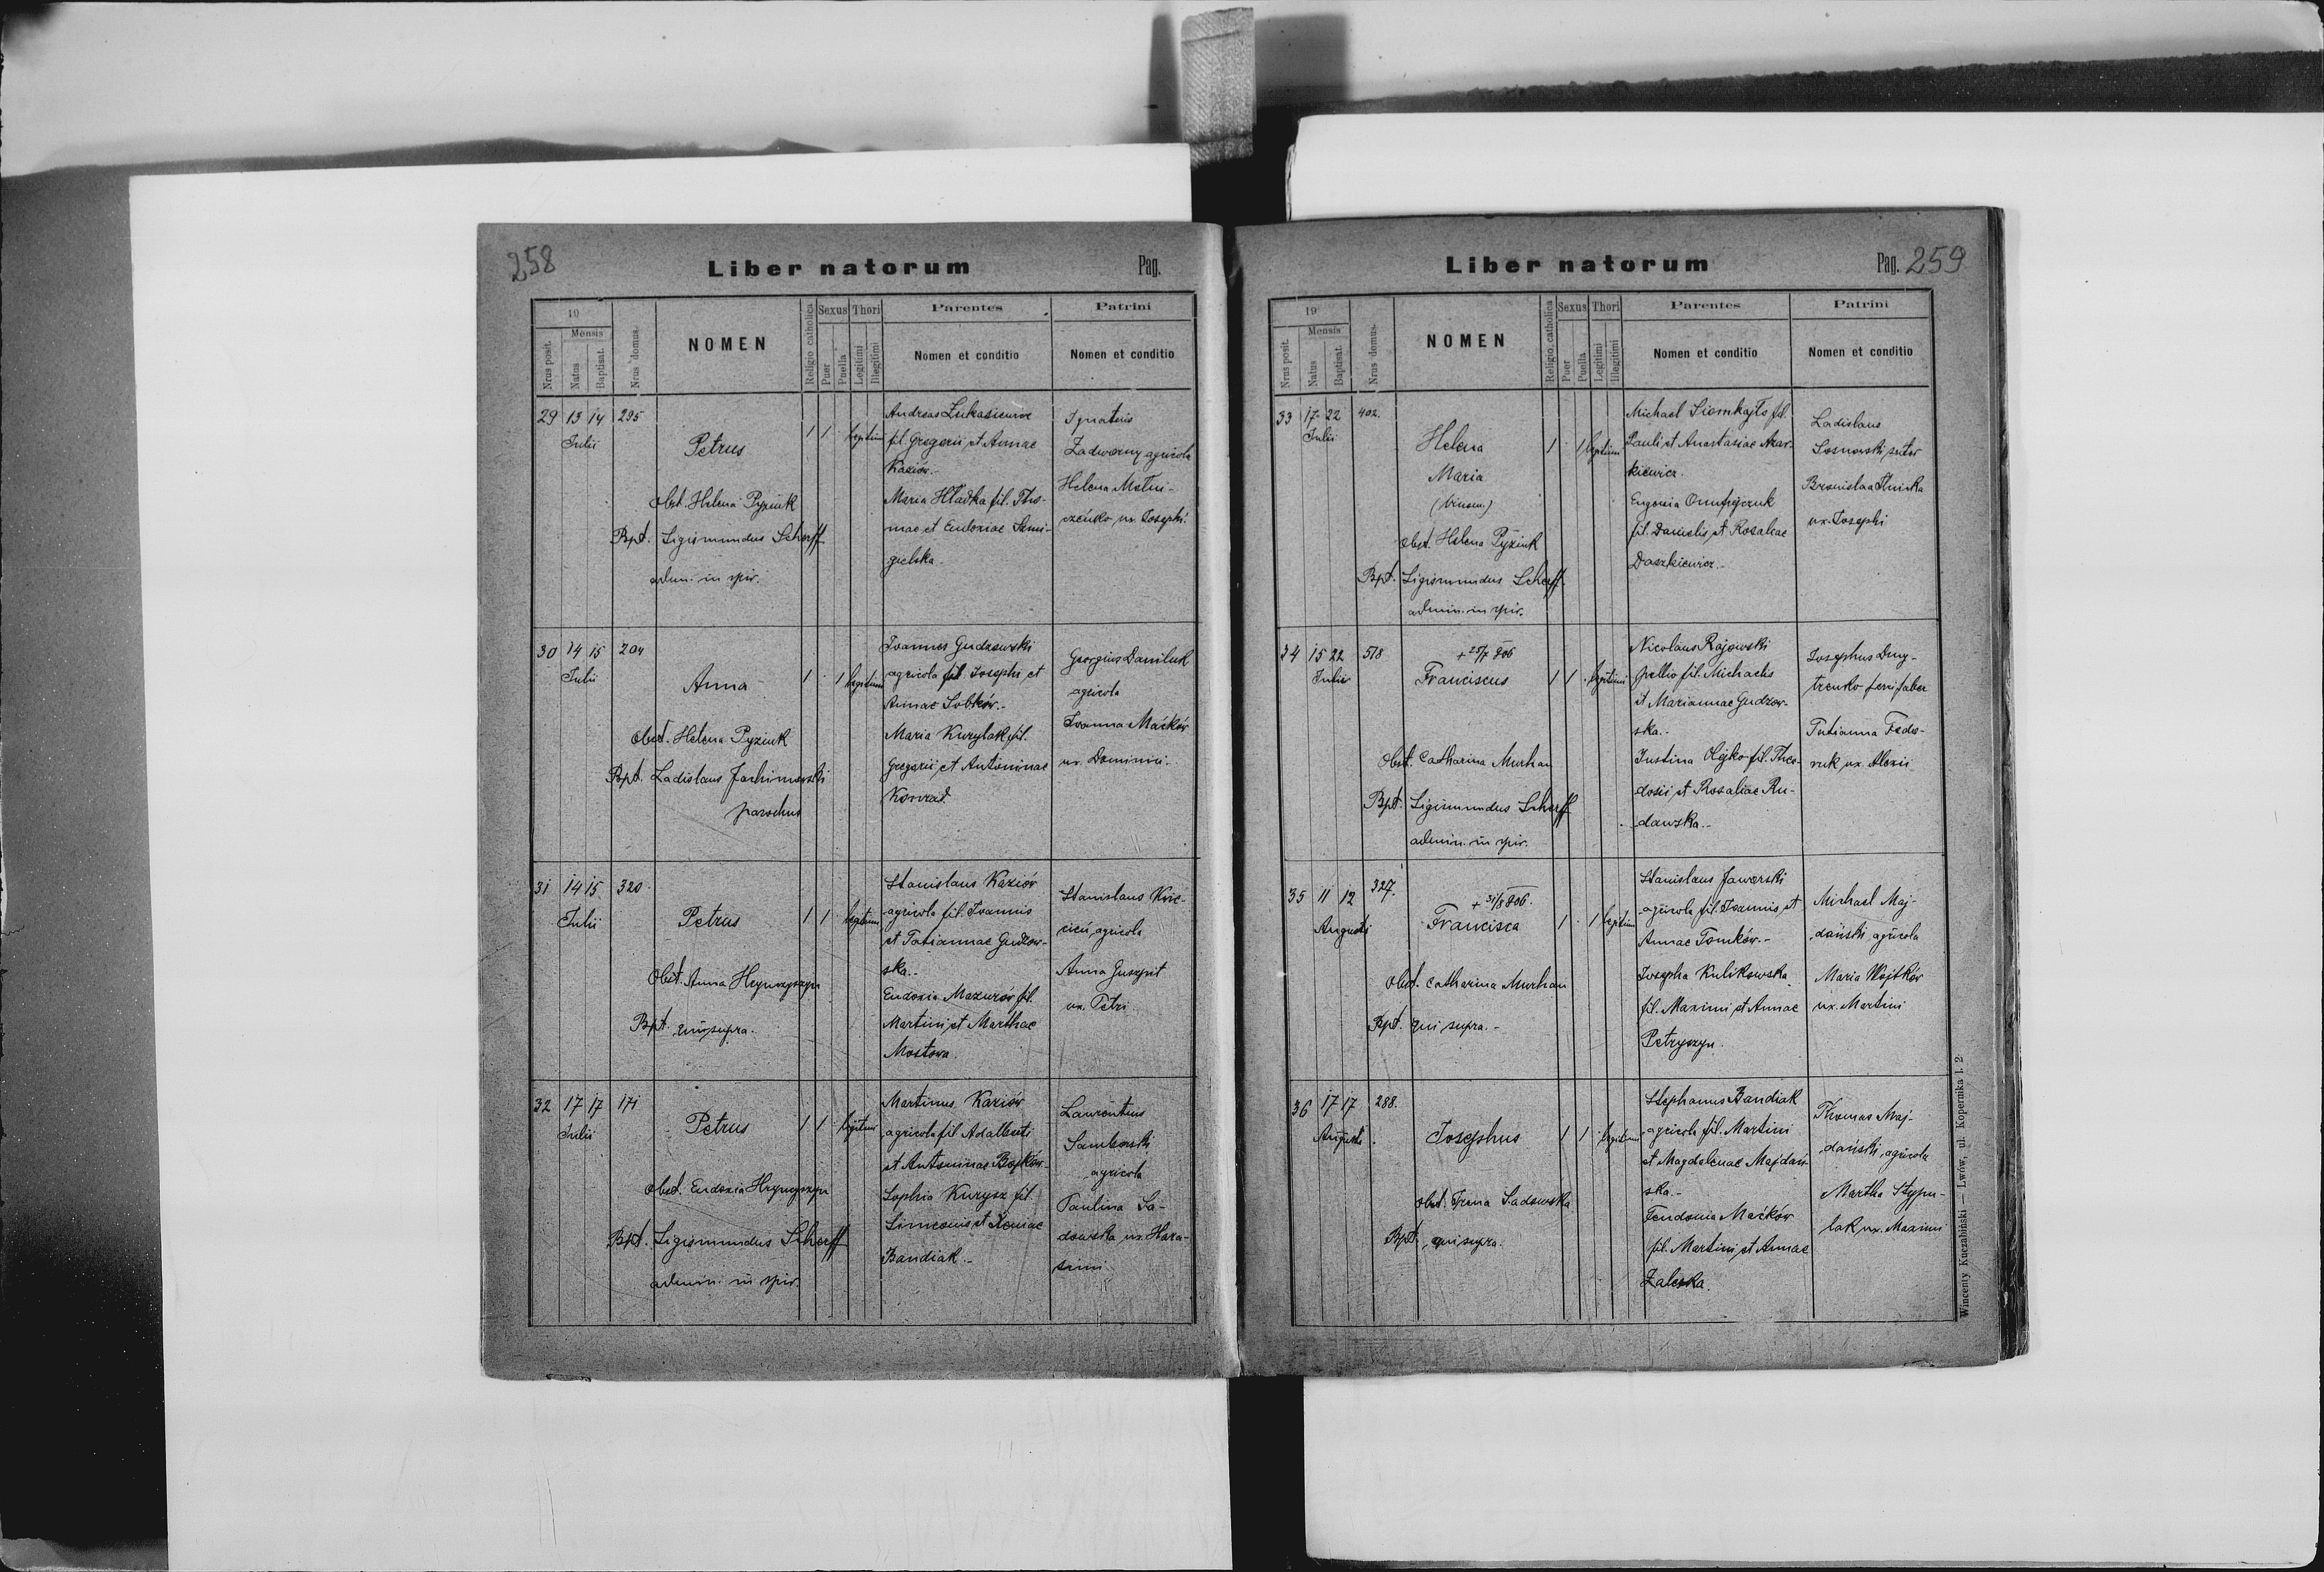 258
Liber natorum
Pag.
19
Mensis
Nrus posit.
Natus
Baptisat.
Nrus domus.
NOMEN
Religio catholica
Sexus
Puer
Puella
Thori
Legitimi
Illegitimi
Parentes
Nomen et conditio
Patrini
Nomen et conditio
29 13 14 295
Julii
Petrus
1 1 legitimi
Obst. Helena Pyziuk
Bpt. Sigismundus Scherff
adm. in spir.
Andreas
fil. Gregorii et Annae
Kaziów.-
Maria Hładka fil. Tho-
mae et Eudoxiae Smi-
gielska
Ignatius
Zadworny agricola
Helena Matwi-
czeńko ux. Josephi.
30 14 15 204
Julii
Anna
1 1 legitimi
Obst. Helena Pyziuk
Bpt. Ladislaus Jachimowski
parochus
Joannes Gudzowski
agricola fil. Josephi et
Annae Sobków.-
Maria Kurylak fil.
Gregorii et Antoninae
Konrad.
Georgius Daniluk
agricola
Joanna Maćków
ux. Dominici.-
31 14 15 320
Julii
Petrus
1 1 legitimi
Obst. Anna Hrynczyszyn
Bpt. qui supra.
Stanislaus Kaziów
agricola fil. Joannis
et Tatiannae Gudzow-
ska.-
Eudoxia Mazurów fil.
Martini et Marthae
Mostowa.
Stanislaus Kwie-
cień agricola
Anna Guszpit
ux. Petri
32 17 17 171
Julii
Petrus
1 1 legitimi
Obst. Eudoxia Hrynczyszyn
Bpt. Sigismundus Scherff
admin. in spir.
Martinus Kaziów
agricola fil. Adalberti
et Antoninae Bojków.
Sophia Kurysz fil.
Simeonis et Xeniae
Bandiak.-
Laurentius
Samborski
agricola
Paulina Sa-
dowska ux. Hara-
simi
Liber natorum
Pag. 259
19
Mensis
Nrus posit.
Natus
Baptisat.
Nrus domus.
NOMEN
Religio catholica
Sexus
Puer
Puella
Thori
Legitimi
Illegitimi
Parentes
Nomen et conditio
Patrini
Nomen et conditio
33 17 22 402.
Julii
Helena
Maria
(binom.)
1 1 legitimi
Obst. Helena Pyziuk
Bpt. Sigismundus Scherff
admin. in spir.
Michael fil.
Pauli et Anastasiae
kiewicz.
Eugenia
fil. Danielis et Rosaliae
Daszkiewicz.-
Ladislaus
Sosnowski sutor
Bronislaa
ux. Josephi
34 15 22 518
Julii
+ 25/7 906
Franciscus
1 1 legitimi
Obst. Catharina Murhan
Bpt. Sigismundus Scherff
admin. in spir.
Nicolaus Rajowski
pellio fil. Michaelis
et Mariannae Gudzow-
ska.-
Justina Olejko fil. Theo-
dosii et Rosaliae Ru-
dawska.-
Josephus Dmy-
trenko ferri faber
Tatianna Fedo-
ruk ux. Alexii
35 11 12 327.
Augusti
+ 31/8 906.
Francisca
1 1 legitimi
Obst. Catharina Murhan
Bpt. qui supra.-
Stanislaus Jaworski
agricola fil. Joannis et
Annae Tomków.-
Josepha Kulikowska
fil. Maximi et Annae
Petryszyn.
Michael Maj-
dański agricola
Maria Wojtków
ux. Martini
36 17 17 288.
Augusti
Josephus
1 1 legitimi
Obst. Irena Sadowska
Bpt. qui supra.
Stephanus Bandiak
agricola fil. Martini
et Magdalenae Majdań-
ska.-
Fendonia Maćków
fil. Martini et Annae
Zaleska.
Thomas Maj-
dański agricola
Martha Stypu-
lak ux. Maximi
Wincenty Kuczabiński — Lwów, ul. Kopernika l. 2